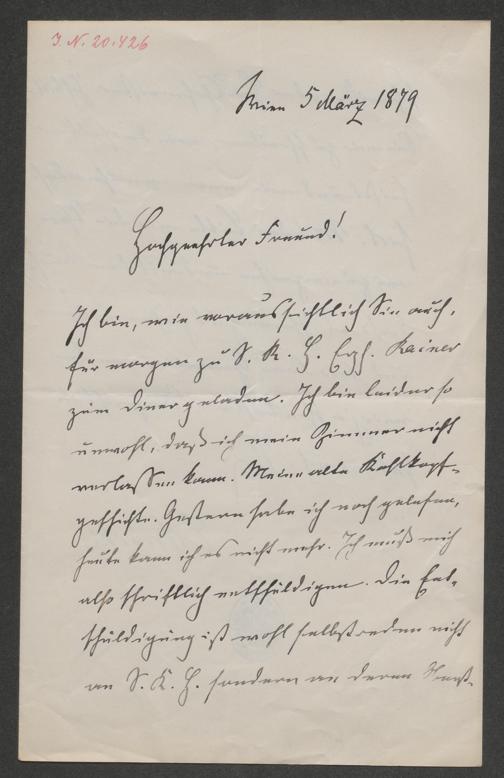 J. N. 20.426
Wien 5 März 1879
Hochgeehrter Freund!
Ich bin, wie voraussichtlich Sie auch,
für morgen zu S. K. H. Erzh. Rainer
zum Diner geladen. Ich bin leider so
unwohl, daß ich mein Zimmer nicht
verlassen kann. Meine alte Kehlkopf-
geschichte. Gestern habe ich noch gelesen,
heute kann ich es nicht mehr. Ich muß mich
also schriftlich entschuldigen. Die Ent-
schuldigung ist wohl selbstredend nicht
an S. K. H. sondern an deren